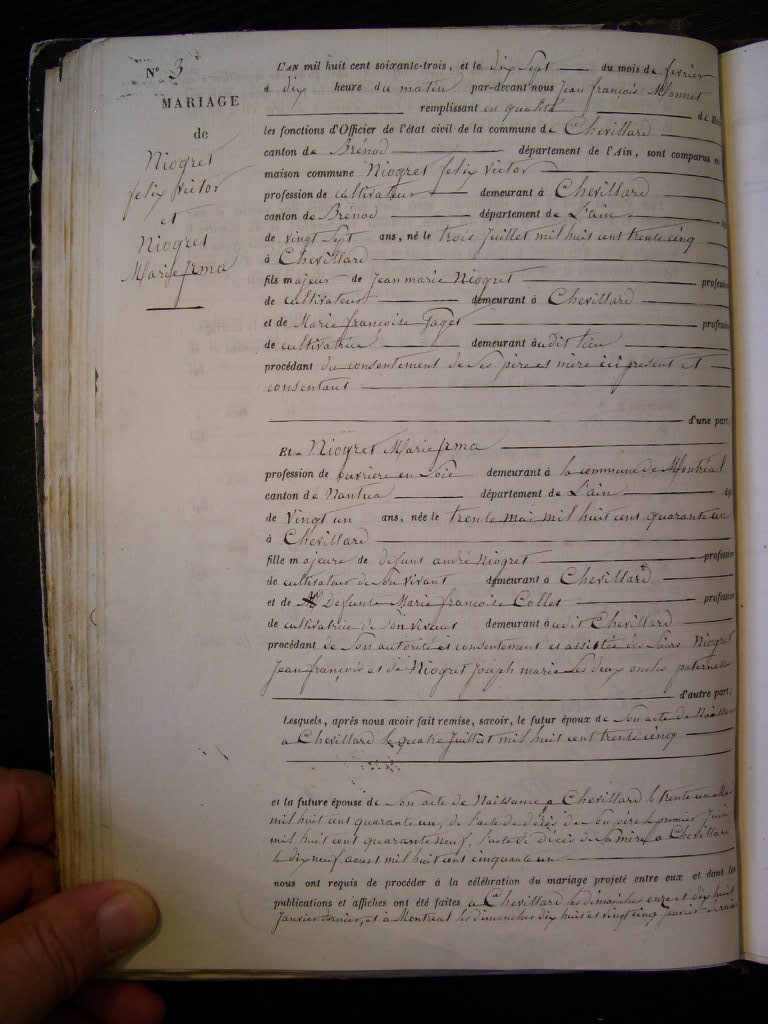 N° 3
MARIAGE
de
Niogret
felix victor
et
Niogret
Marie Irma
L'AN mil huit cent soixante-trois, et le dix Sept du mois de fevrier
à dix heure du matin par-devant nous Jean françois Monnet
remplissant en qualité de
les fonctions d'Officier de l'état civil de la commune de Chevillard
canton de Brénod département de l'Ain, sont comparus en
maison commune Niogret felix victor
profession de cultivateur demeurant à Chevillard
canton de Brénod département de L'ain
de vingt Sept ans, né le trois Juillet mil huit cent trente cinq
à Chevillard
fils majeur de Jean marie Niogret profession
de cultivateur demeurant à Chevillard
et de Marie françoise profession
de cultivatrice demeurant audit lieu
procédant du consentement de Ses père et mère ici present et
consentant
d'une part;
Et Niogret Marie Irma
profession de ouvriere en Soie demeurant à la commune de Montréal
canton de Nantua département de L'ain
de Vingt un ans, née le trente mai mil huit cent quarante un
à Chevillard
fille majeure de defunt andré Niogret profession
de cultivateur de Son vivant demeurant à Chevillard
et de Defunte Marie francoise Collet profession
de cultivatrice de Son vivant demeurant audit Chevillard
procédant de Son autorité et consentement et assistée des Sieurs Niogret
Jean françois et de Niogret Joseph marie Les deux oncles paternelle
d'autre part;
Lesquels, après nous avoir fait remise, savoir, le futur époux de Son acte de Naissance
a Chevillard le quatre Juilliet mil huit cent trente cinq
et la future épouse de Son acte de Naissance a Chevillard le trente un Mai
mil huit cent quarante un, de l'acte de Décès de Son père le premier Juin
mil huit cent quarante neuf, l'acte de Décès de Sa mère a Chevillard
le dix neuf aout mil huit cent cinquante un
nous ont requis de procéder à la célébration du mariage projeté entre eux et dont les
publications et affiches ont été faites a Chevillard les dimanches onze et dix huit
Janvier dernier, et a Montreal les dimanches dix huit et vingt cinq Janvier dernier